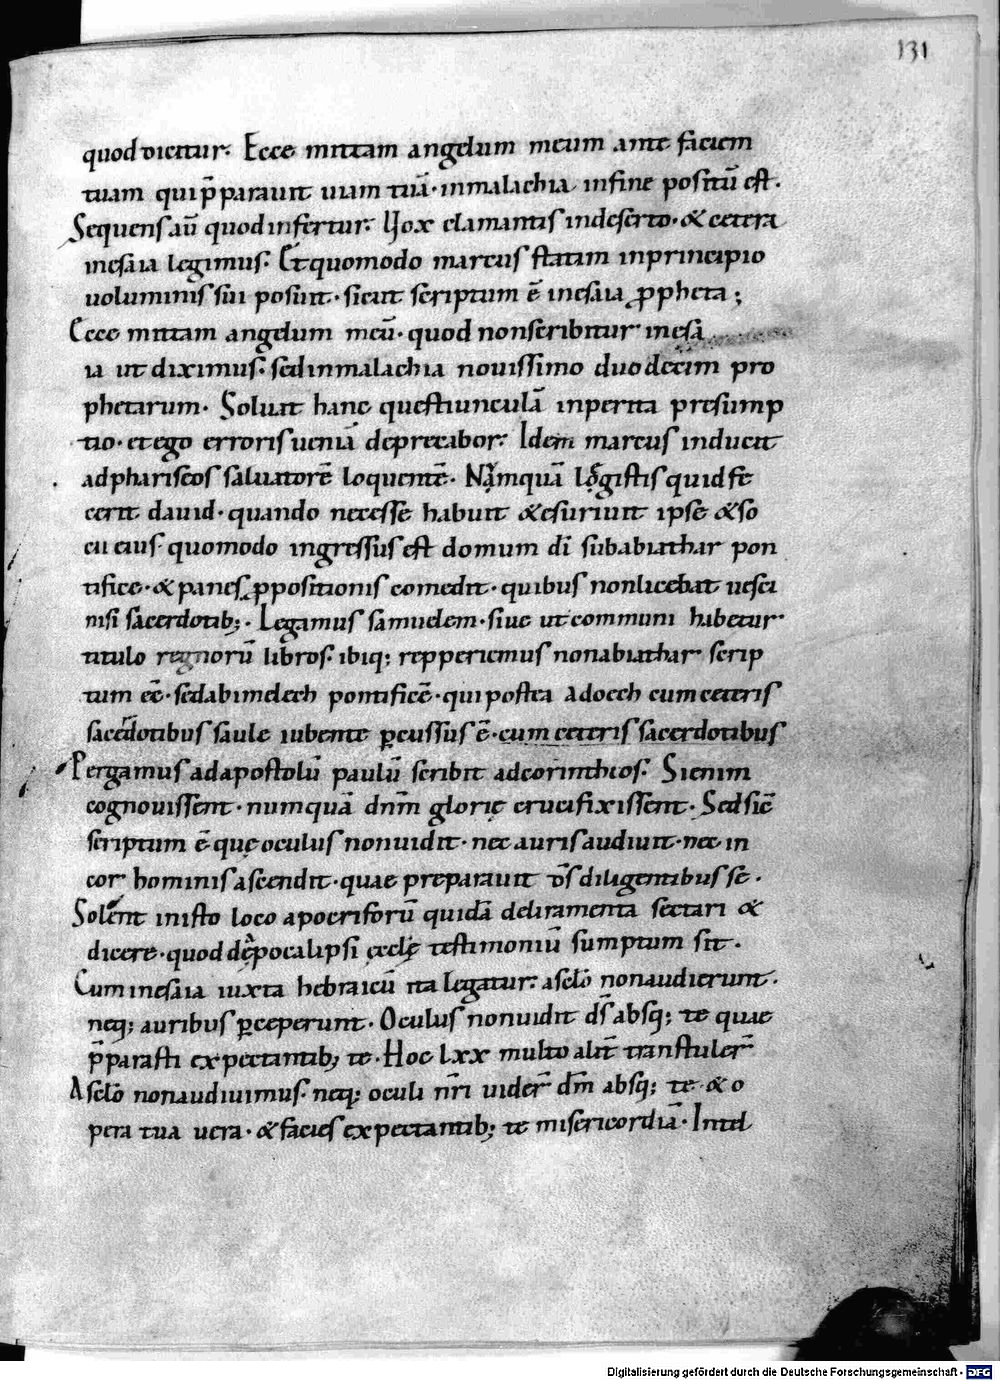 131
quod dicitur. Ecce mittam angelum meum ante faciem
tuam qui p̄parauit uiam tuā· inmalachia infine positū est.
Sequens aū quod infertur. Uox clamantis indeserto· & cetera
inesaia legimus. Et quomodo marcus statim inprincipio
uoluminis sui posuit· sicut scriptum ē inesaia ꝓpheta;
Ecce mittam angelum meū· quod nonscribitur inesa
ia ut diximus. sed inmalachia nouissimo duodecim pro
phetarum. Soluat hanc questiunculā inperita presump
tio· et ego erroris ueniā deprecabor. Idem marcus inducit
ad phariseos saluatorē loquentē. Nūmquā legistis quid fe
cerit dauid· quando necesse habuit & esuriuit ipse & so
cii eius· quomodo ingressus est domum dī sub abiathar pon
tifice· & panes ꝓpositionis comedit· quibus nonlicebat uesci
nisi sacerdotib;. Legamus samuelem· siue ut communi habetur
titulo regnorū libros· ibiq; repperiemus nonabiathar scrip
tum eē· sed abimelech pontificē· qui postea a doech cum ceteris
sacerdotibus saule iubente ꝑcussus ē· cum ceteris sacerdotibus
Pergamus ad apostolū paulū scribit ad corintheos. Si enim
cognouissent· numquā dnm̄ glorię crucifixissent. Sed sic̄
scriptum ē quę oculus nonuidit· nec auris audiuit· nec in
cor hominis ascendit· quae preparauit dS̄ diligentibus se.
Solent inisto loco apocriforū quidā deliramenta sectari &
dicere· quod de apocalipsi ęclę testimoniū sumptum sit.
Cum inesaia iuxta hebraicū ita legatur. a sclō nonaudierunt.
neq; auribus ꝑceperunt. Oculus nonuidit dS̄ absq; te quae
p̄parasti expectantib; te. Hoc lxx multo alit̄ transtuler̄
A sclō nonaudiuimus· neq; oculi nr̄i uider̄ dm̄ absq; te & o
pera tua uera· & facies expectantib; te misericordiā. Intel
Digitalisierung gefördert durch die Deutsche Forschungsgemeinschaft - DFG